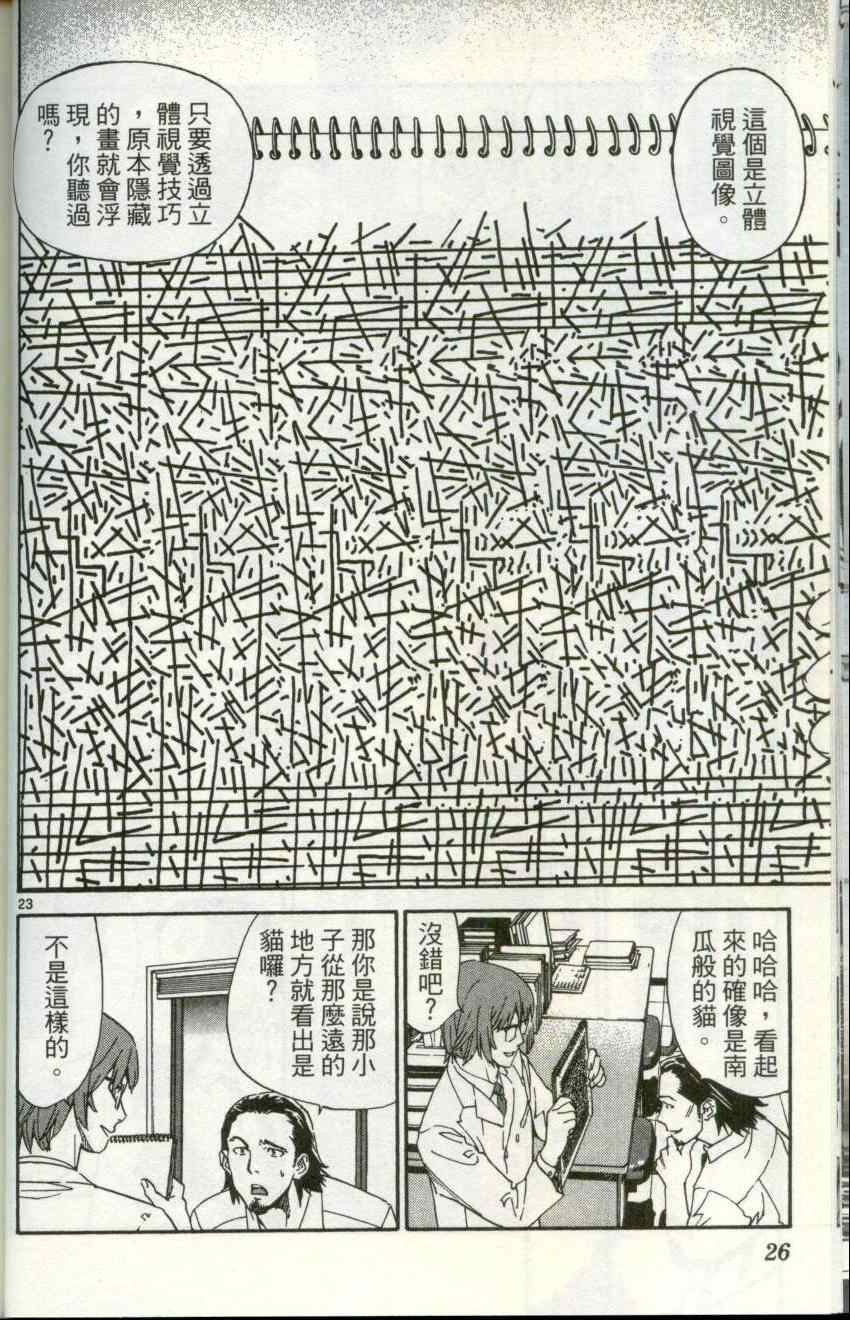 這個是立體
視覺圖像。
只要透過立
體視覺技巧
，原本隱藏
的畫就會浮
現，你聽過
嗎？
23
哈哈哈，看起
來的確像是南
瓜般的貓。
沒錯吧？
那你是說那小
子從那麼遠的
地方就看出是
貓囉？
不是這樣的。
26